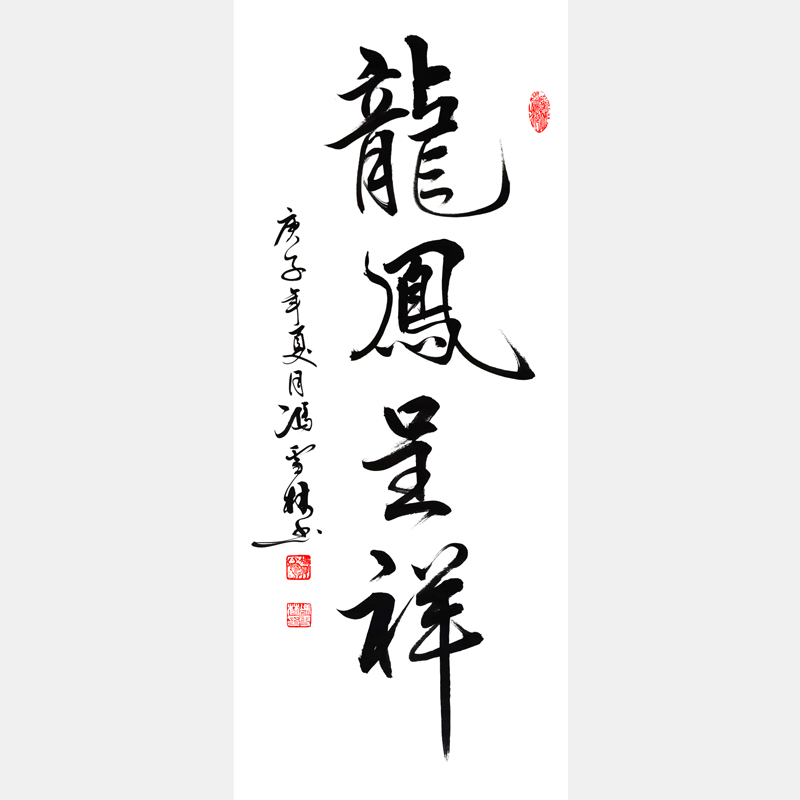 龍鳳呈祥
庚子年夏月馮雪林书